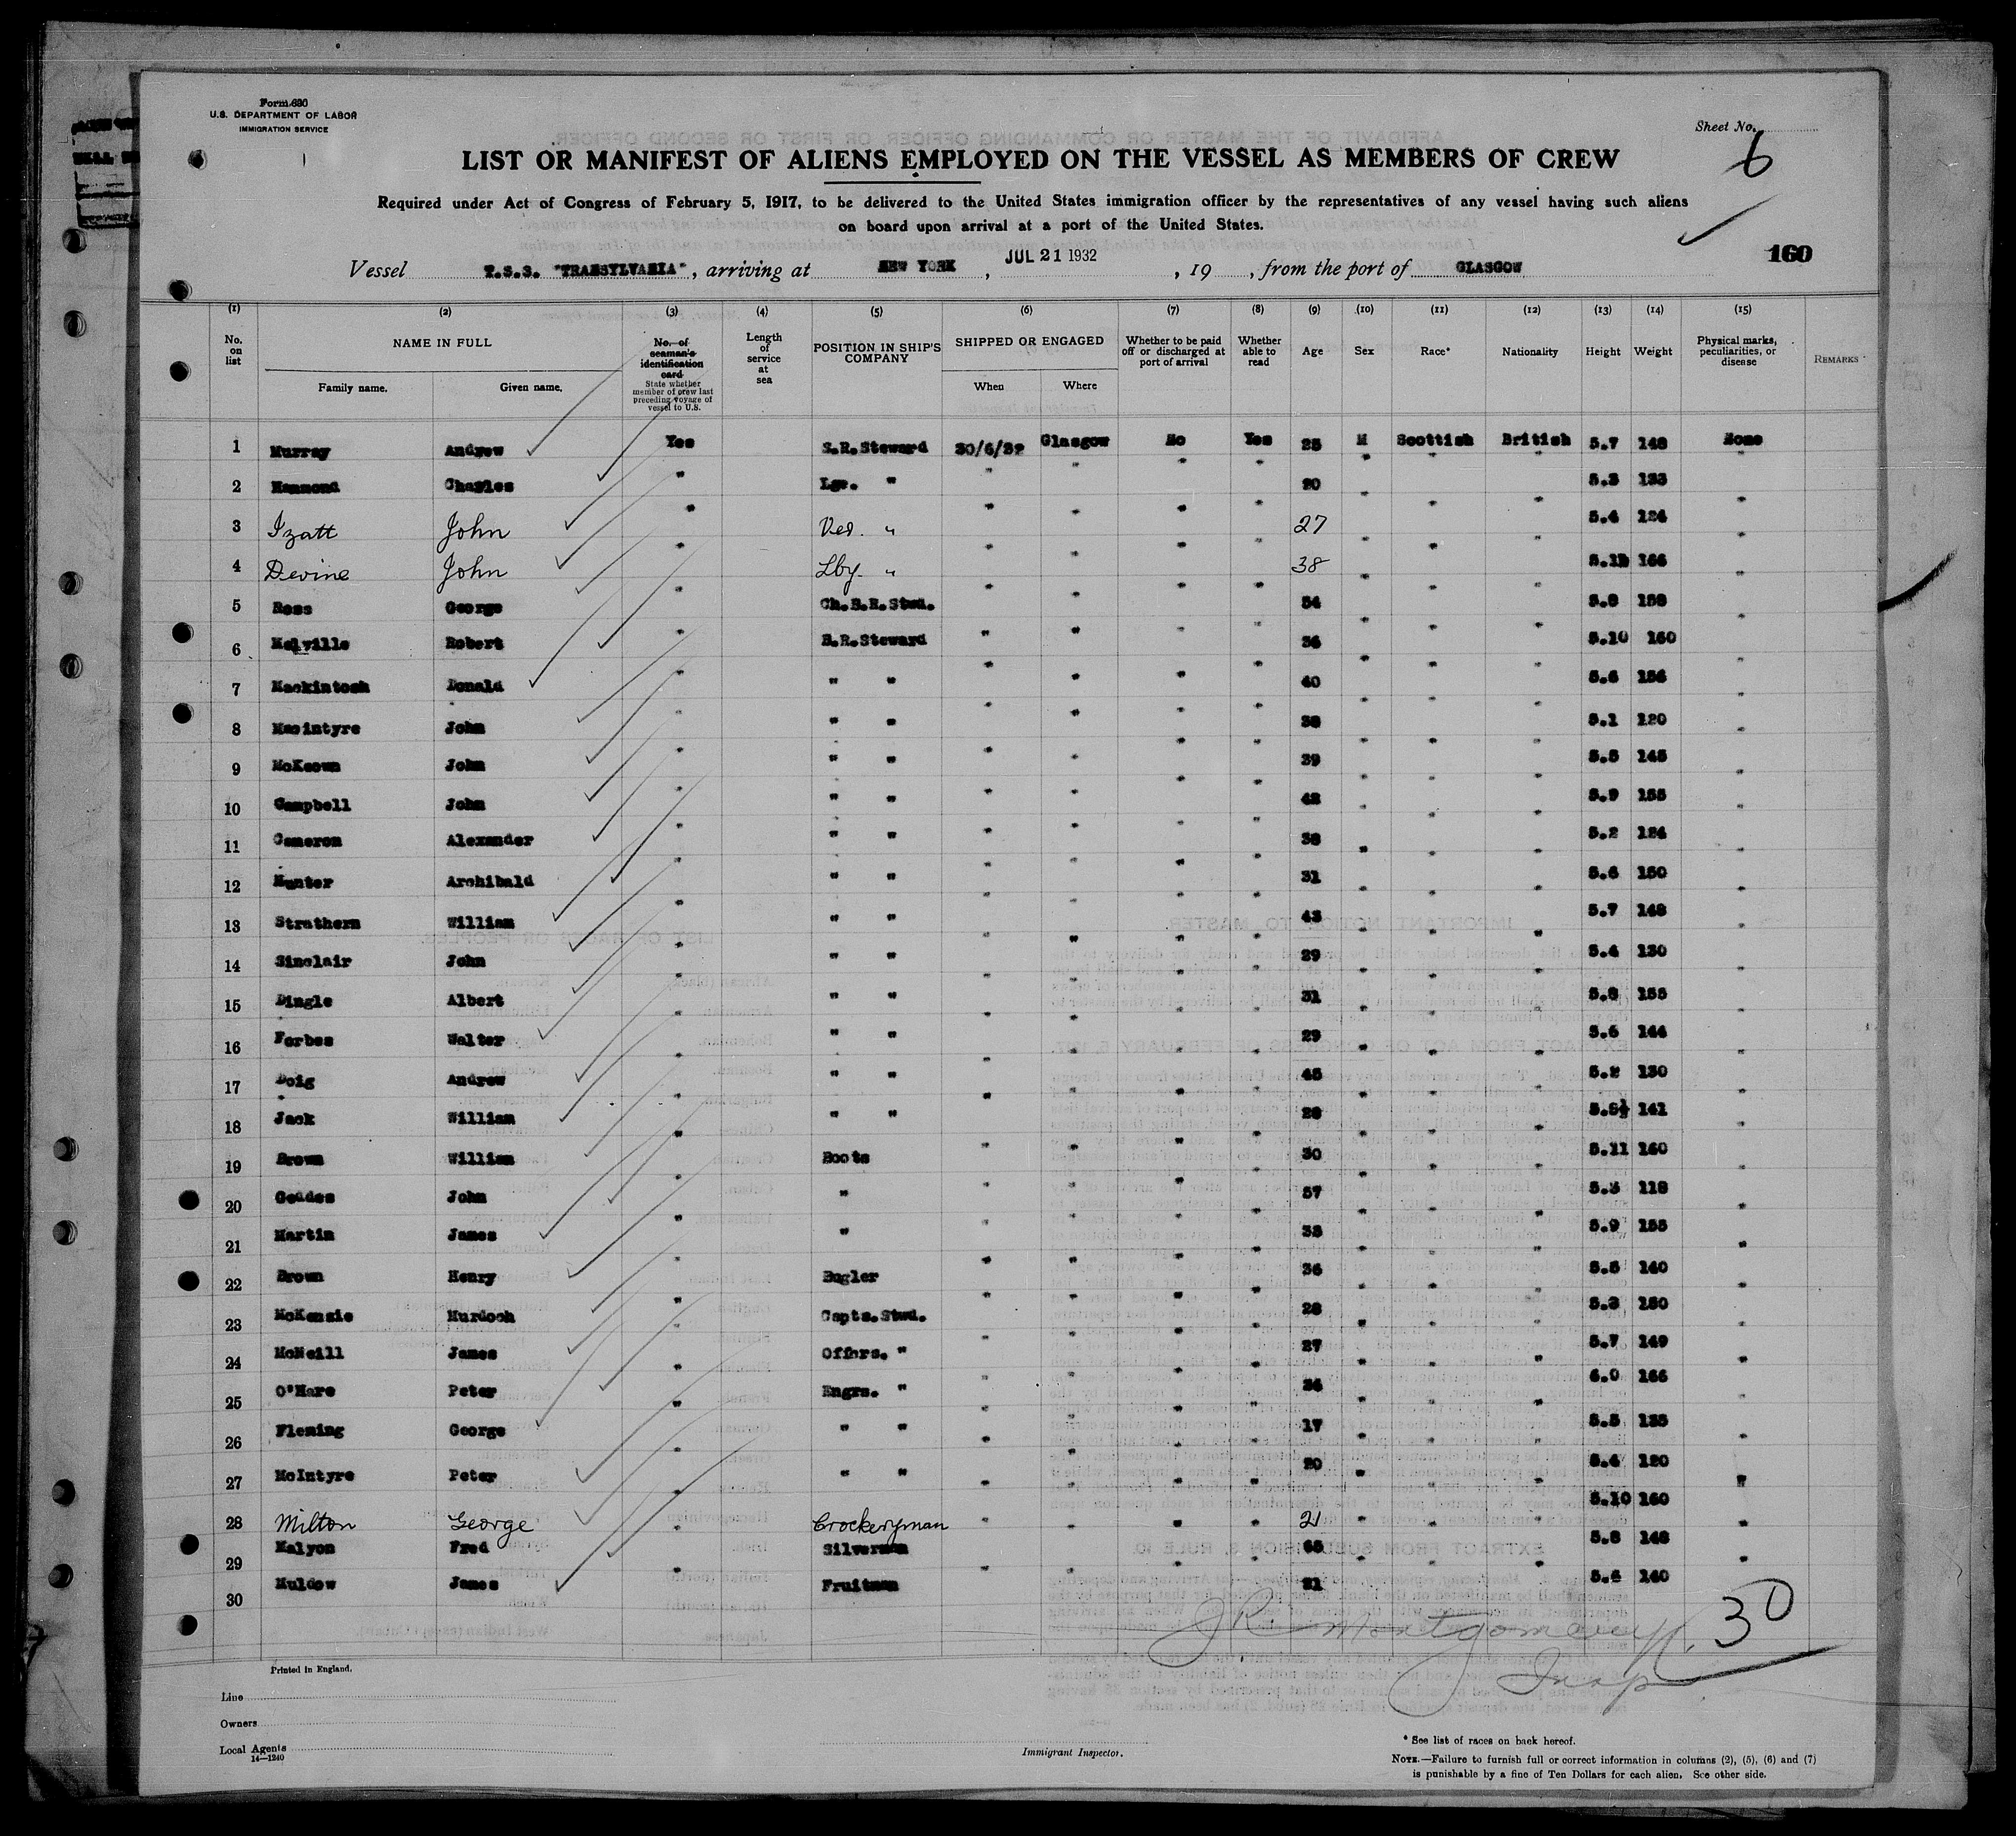 Form 680
U.S. DEPARTMENT OF LABOR
IMMIGRATION SERVICE
Sheet No. 6
LIST OR MANIFEST OF ALIENS EMPLOYED ON THE VESSEL AS MEMBERS OF CREW
Required under Act of Congress of February 5, 1917, to be delivered to the United States immigration officer by the representatives of any vessel having such aliens
on board upon arrival at a port of the United States.
160
Vessel T.S.S. "TRANSYLVANIA", arriving at NEW YORK, JUL 21 1932, 19 , from the port of GLASGOW
(1) (2) (3) (4) (5) (6) (7) (8) (9) (10) (11) (12) (13) (14) (15)
No. on list NAME IN FULL Family name. Given name. No. of seaman's identification card State whether member of crew last preceding voyage of vessel to U.S. Length of service at sea POSITION IN SHIP'S COMPANY SHIPPED OR ENGAGED When Where Whether to be paid off or discharged at port of arrival Whether able to read Age Sex Race* Nationality Height Weight Physical marks, peculiarities, or disease REMARKS
1 Murray Andrew Yes S.R.Steward 30/6/32 Glasgow No Yes 25 M Scottish British 5.7 148 None
2 Hammond Charles " Lge. " " " " " 20 " " " 5.3 133 "
3 Izatt John " Ved. " " " " " 27 " " " 5.4 124 "
4 Devine John " Lby. " " " " " 38 " " " 166 "
5 Ross George " Ch.B.R.Stwd. " " " " 54 " " " 5.8 158 "
6 Melville Robert " B.R.Steward " " " " 36 " " " 5.10 160 "
7 Mackintosh Donald " " " " " " " 40 " " " 5.6 156 "
8 Macintyre John " " " " " " " 38 " " " 5.1 120 "
9 McKeown John " " " " " " " 39 " " " 5.5 145 "
10 Campbell John " " " " " " " 42 " " " 5.9 155 "
11 Cameron Alexander " " " " " " " 38 " " " 5.2 124 "
12 Hunter Archibald " " " " " " " 31 " " " 5.6 150 "
13 Strathern William " " " " " " " 43 " " " 5.7 148 "
14 Sinclair John " " " " " " " 29 " " " 5.4 130 "
15 Dingle Albert " " " " " " " 31 " " " 5.8 155 "
16 Forbes Walter " " " " " " " 29 " " " 5.6 144 "
17 Doig Andrew " " " " " " " 45 " " " 5.2 130 "
18 Jack William " " " " " " " 28 " " " 141 "
19 Brown William " Boots " " " " 30 " " " 5.11 160 "
20 Geddes John " " " " " " 57 " " " 5.3 118 "
21 Martin James " " " " " " 38 " " " 5.9 155 "
22 Brown Henry " Bugler " " " " 36 " " " 5.5 140 "
23 McKenzie Murdoch " Capts.Stwd. " " " " 28 " " " 5.3 150 "
24 McNeill James " Offors. " " " " " 27 " " " 5.7 149 "
25 O'Hare Peter " Engrs. " " " " " 36 " " " 6.0 166 "
26 Fleming George " " " " " " " 17 " " " 5.5 135 "
27 McIntyre Peter " " " " " " " 20 " " " 5.4 120 "
28 Milton George " Crockeryman " " " " 21 " " " 5.10 160 "
29 Malyon Fred " Silverman " " " " 65 " " " 5.8 148 "
30 Muldow James " Fruitman " " " " 21 " " " 5.6 140 "
J R Montgomery 30
Insp
Printed in England.
Line
Owners
Local Agents
14—1240
Immigrant Inspector.
* See list of races on back hereof.
NOTE.—Failure to furnish full or correct information in columns (2), (5), (6) and (7)
is punishable by a fine of Ten Dollars for each alien. See other side.